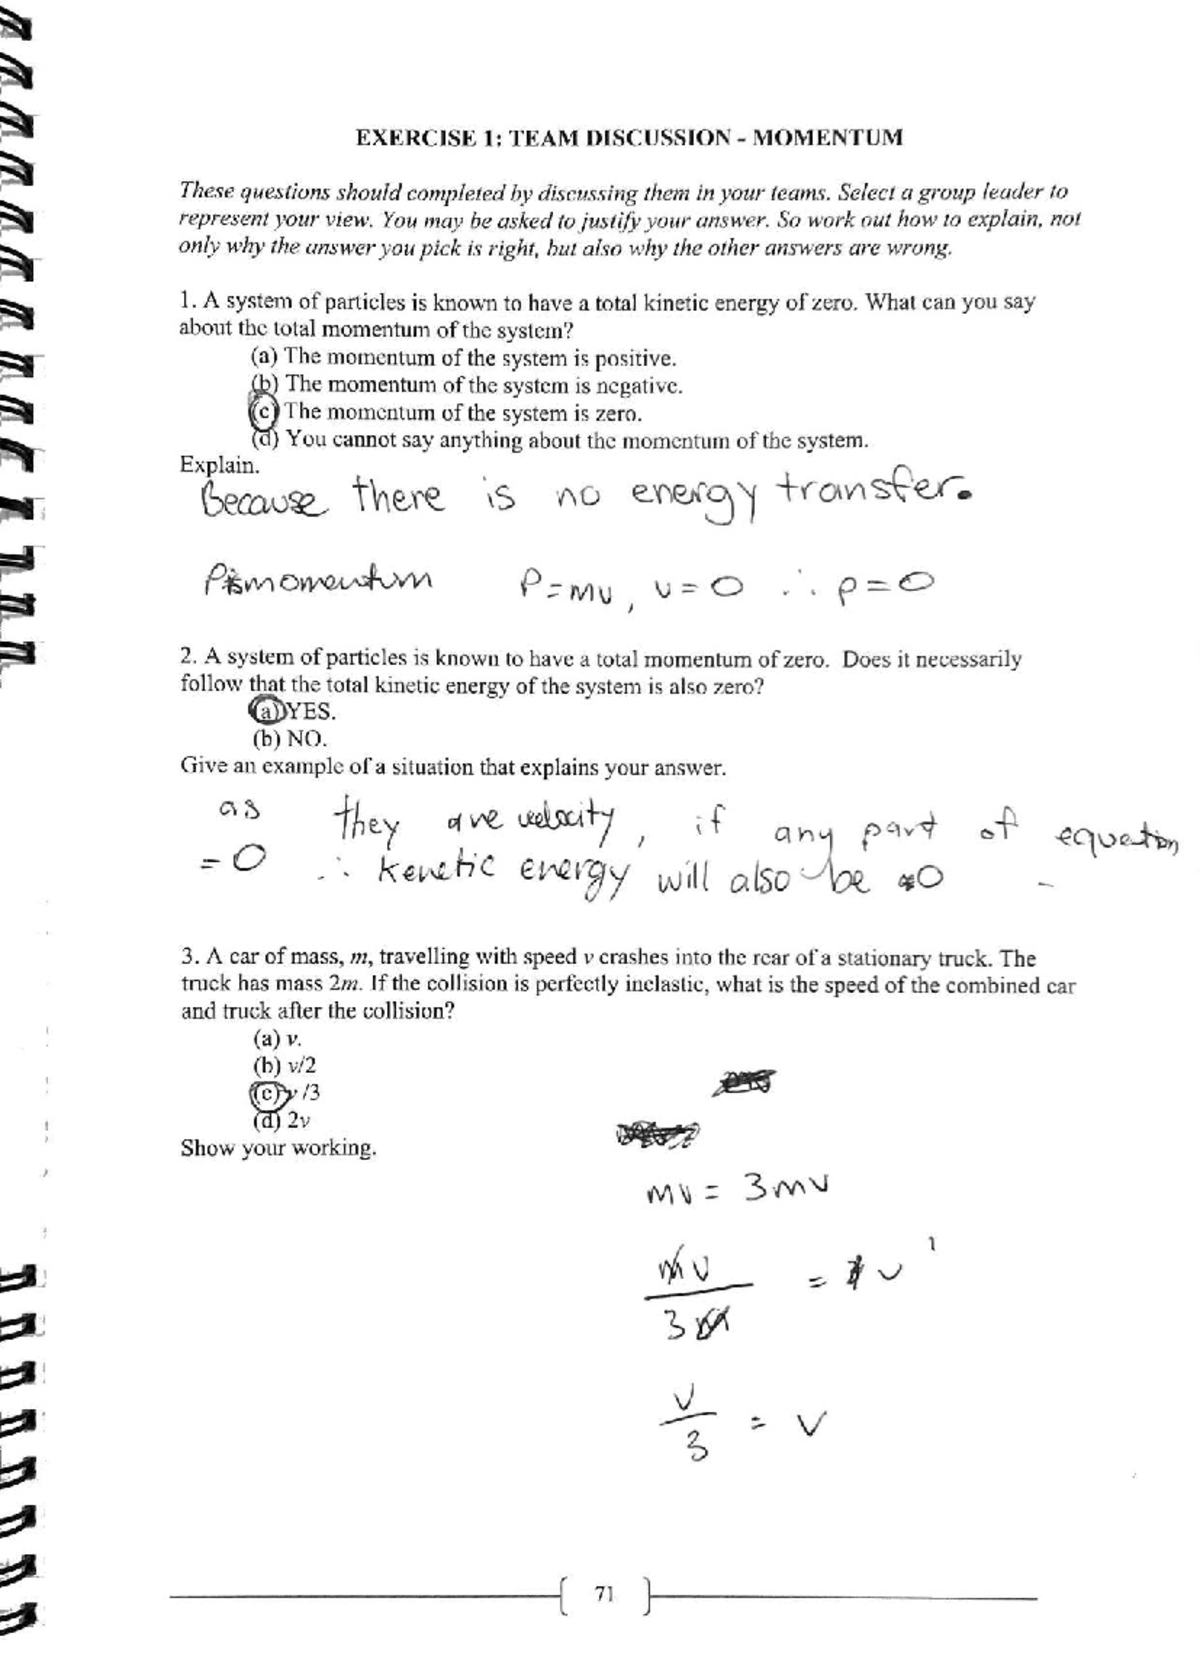 EXERCISE 1: TEAM DISCUSSION - MOMENTUM
These questions should completed by discussing them in your teams. Select a group leader to
represent your view. You may be asked to justify your answer. So work out how to explain, not
only why the answer you pick is right, but also why the other answers are wrong.
1. A system of particles is known to have a total kinetic energy of zero. What can you say
about the total momentum of the system?
(a) The momentum of the system is positive.
(b) The momentum of the system is negative.
(c) The momentum of the system is zero.
(d) You cannot say anything about the momentum of the system.
Explain.
Because there is no energy transfer.
P is momentum P=mv, v=0 ∴ p=0
2. A system of particles is known to have a total momentum of zero. Does it necessarily
follow that the total kinetic energy of the system is also zero?
(a) YES.
(b) NO.
Give an example of a situation that explains your answer.
as they are velocity, if any part of equation
=0 ∴ kenetic energy will also be =0
3. A car of mass, m, travelling with speed v crashes into the rear of a stationary truck. The
truck has mass 2m. If the collision is perfectly inelastic, what is the speed of the combined car
and truck after the collision?
(a) v.
(b) v/2
(c) v/3
(d) 2v
Show your working.
mv = 3mv
mv
= v'
3m
v
= v
3
71